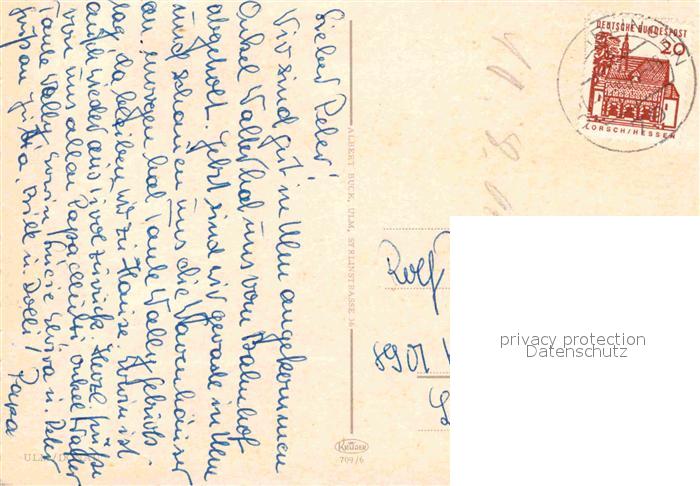 Lieber Peter!
Wir sind gut in Ulm angekommen
Onkel Walter hat uns vom Bahnhof
abgeholt. Jetzt sind wir gerade in Ulm
und schauen uns die Warenhäuser
an. Morgen hat Tante Wally Geburts-
tag, da bleiben wir zu Hause. Erwin ist
auch wieder aus zurück. Herzl. Grüße
von uns allen Papa Onkel Walter
Tante Wally, Erwin, Lucie u. Peter
Papa
ALBERT BUCK, ULM, SYRLINSTRASSE 36
ULM/DONAU
KRÜGER
709/6
DEUTSCHE BUNDESPOST
20
LORSCH/HESSEN
Rolf
8901
privacy protection
Datenschutz